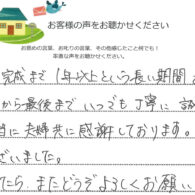 お客様の声をお聴かせください
お褒めの言葉、お叱りの言葉、その他感じたこと何でも!
率直な声をお聴かせください。
完成まで1年以上という長い期間
から最後まで いつも丁寧に
当に夫婦共に感謝しております。
ざいました。
たら、またどうぞよろしくお願